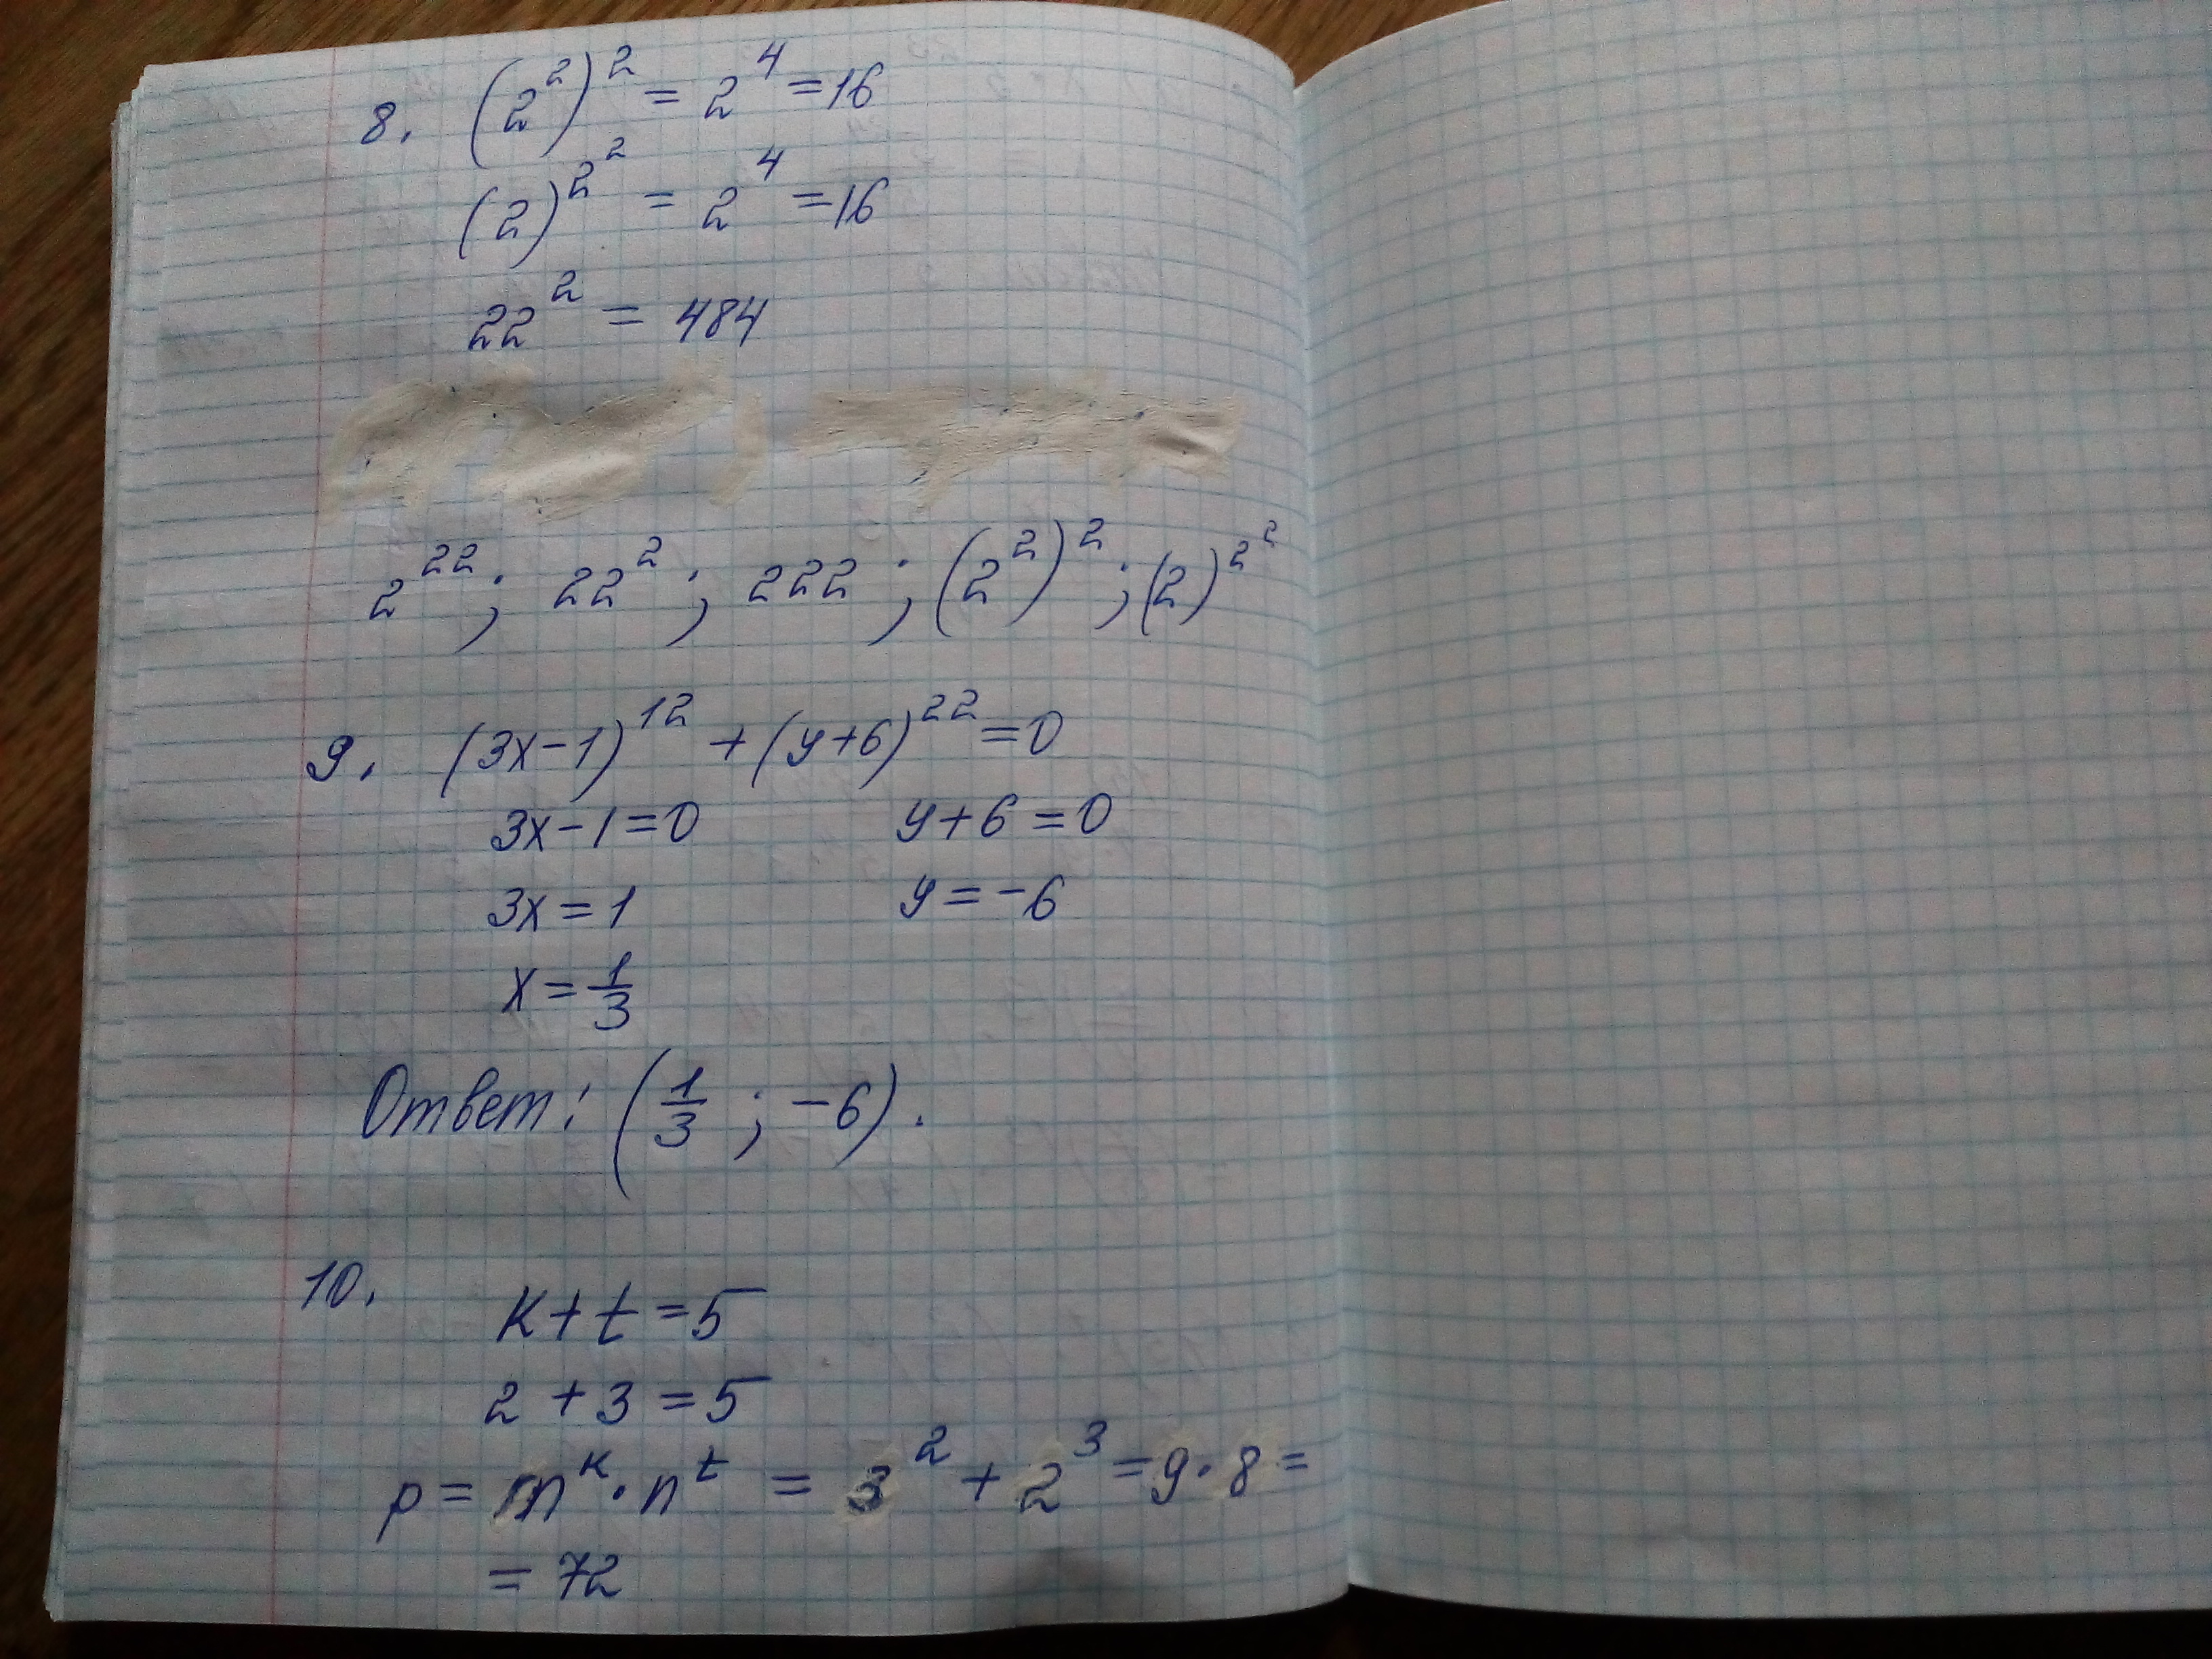 8. (2²)² = 2⁴ = 16
(2)^2^2 = 2⁴ = 16
22² = 484
2²²; 22²; 222; (2²)²; (2)^2^2
9. (3x-1)¹² + (y+6)²² = 0
3x-1=0 y+6=0
3x=1 y=-6
x=1/3
Ответ: (1/3; -6).
10. k+t=5
2+3=5
p = m^k · n^t = 3² + 2³ = 9·8 =
= 72